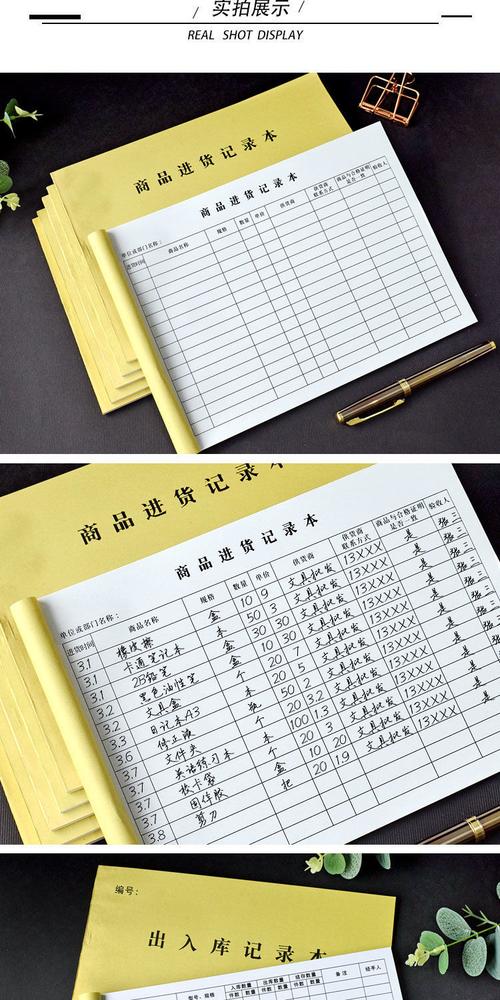 实拍展示
REAL SHOT DISPLAY
商品进货记录本
商品进货记录本
单位或部门名称：
进货时间 商品名称 规格 数量 单价 供货商 供货商联系方式 商品与合格证明是否一致 验收人
商品进货记录本
商品进货记录本
单位或部门名称：
进货时间 商品名称 规格 数量 单价 供货商 供货商联系方式 商品与合格证明是否一致 验收人
3.1 橡皮擦 盒 10 9 文具批发 13XXX 是 张三
3.1 卡通笔记本 本 50 3 文具批发 13XXX 是 张三
3.1 2B铅笔 盒 30 30 文具批发 13XXX 是 张三
3.2 黑色油性笔 盒 10 30 文具批发 13XXX 是 张三
3.2 文具盒 个 20 7 文具批发 13XXX 是 张三
3.3 日记本A3 本 20 5 文具批发 13XXX 是 张三
3.6 修正液 瓶 50 2 文具批发 13XXX 是 张三
3.7 文件夹 个 20 3.2 文具批发 13XXX 是
3.7 英语练习本 本 100 1.3 文具批发 13XXX 是
3.7 校卡袋 个 20 3 文具批发 13XXX 是
3.7 固体胶 盒 10 20 文具批发 13XXX 是
3.8 剪刀 把 20 19 文具批发 13XXX 是
编号：
出入库记录本
入库数量 出库数量 结存数量
型号、规格 件数 数量 件数 数量 件数 数量 备注 经手人